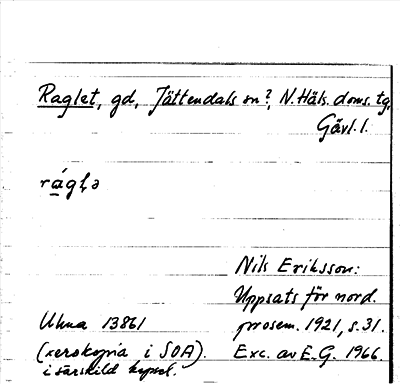 Raglet, gd, Jättendals sn?, N. Häls. doms. tg,
Gävl. l.
rágḷə
Nils Eriksson:
Uppsats för nord.
Ukua 13861 prosem. 1921, s. 31.
(xerokopia i SOA). Exc. av E.G. 1966.
i särskild kapsel.